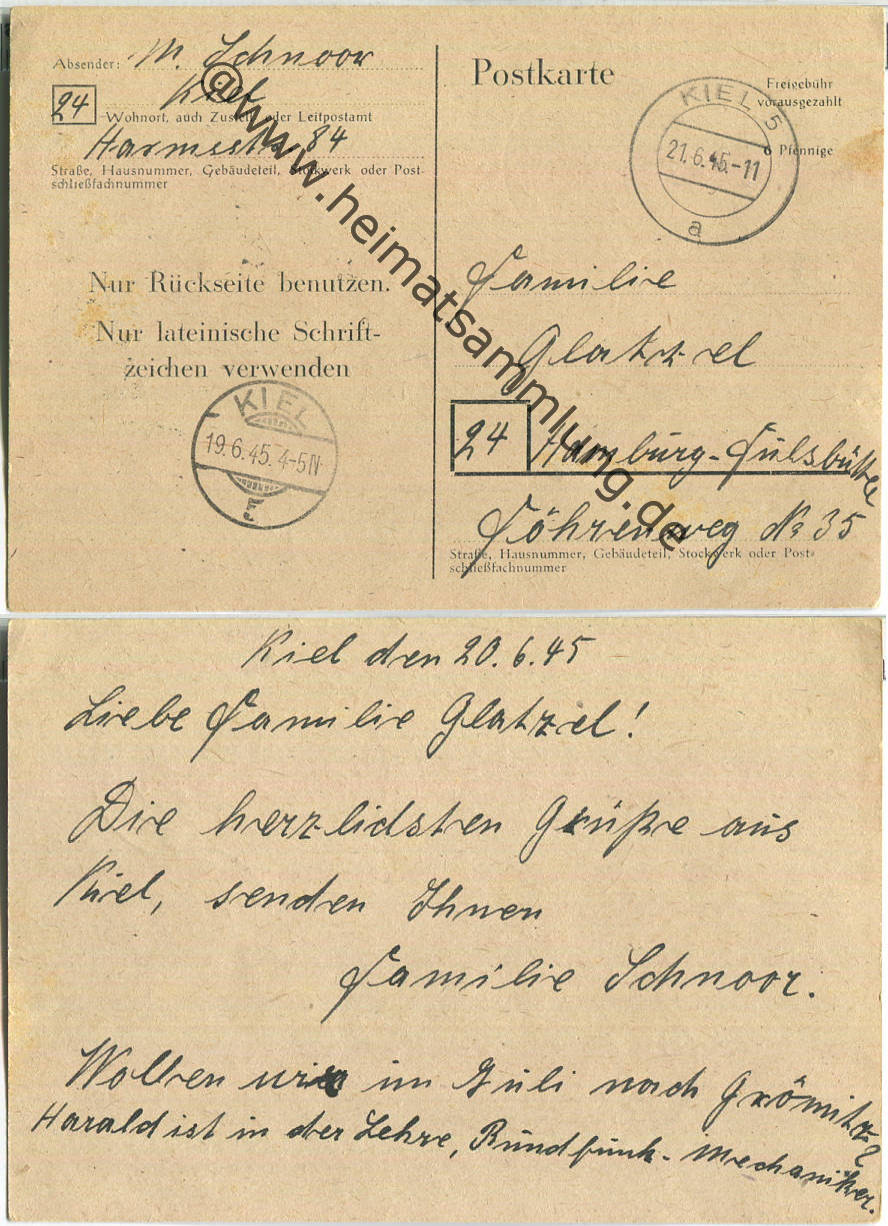 Absender: M. Schnoor
24 Kiel
Wohnort, auch Zustell- oder Leitpostamt
Harmsstr. 84
Straße, Hausnummer, Gebäudeteil, Stockwerk oder Post-
schließfachnummer
Nur Rückseite benutzen.
Nur lateinische Schrift-
zeichen verwenden
KIEL
19.6.45.4-5N
Postkarte
Freigebühr
vorausgezahlt
6 Pfennige
KIEL 5
21.6.45.-11
a
Familie
Glatzel
24 Hamburg-Fulsbüttel
Föhrenweg No 35
Straße, Hausnummer, Gebäudeteil, Stockwerk oder Post-
schließfachnummer
@www.heimatsammlung.de
Kiel den 20.6.45
Liebe Familie Glatzel!
Die herzlidsten Grüße aus
Kiel, senden Ihnen
Familie Schnoor.
Wollen wir im Juli nach Grömitz?
Harald ist in der Lehre, Rundfunk-Mechaniker.